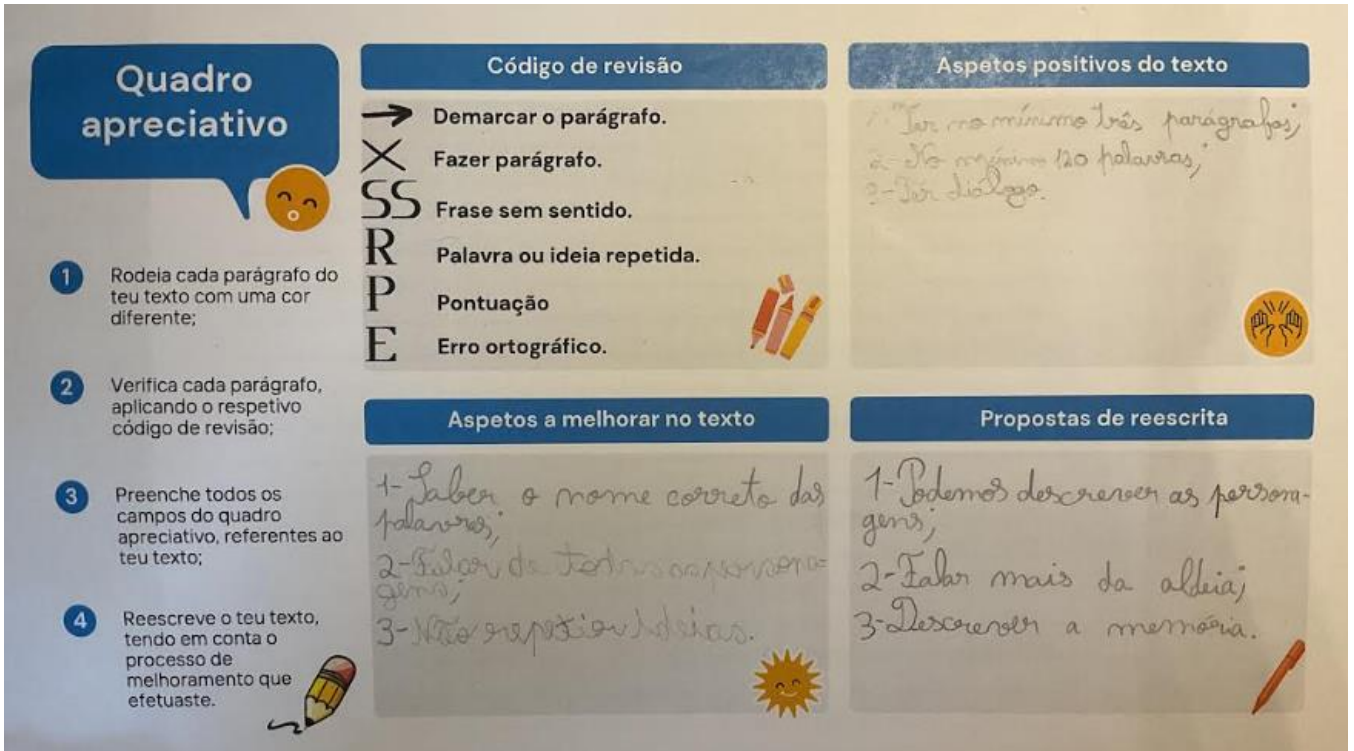 Quadro
apreciativo
1 Rodeia cada parágrafo do
teu texto com uma cor
diferente;
2 Verifica cada parágrafo,
aplicando o respetivo
código de revisão;
3 Preenche todos os
campos do quadro
apreciativo, referentes ao
teu texto;
4 Reescreve o teu texto,
tendo em conta o
processo de
melhoramento que
efetuaste.
Código de revisão
→ Demarcar o parágrafo.
X Fazer parágrafo.
SS Frase sem sentido.
R Palavra ou ideia repetida.
P Pontuação
E Erro ortográfico.
Aspetos positivos do texto
1- Ter no mínimo três parágrafos;
2- No mínimo 120 palavras;
3- Ter diálogo.
Aspetos a melhorar no texto
1- Saber o nome correto das
palavras;
2- Falar de todas as persona-
gens;
3- Não repetir ideias.
Propostas de reescrita
1- Podemos descrever as persona-
gens;
2- Falar mais da aldeia;
3- Descrever a memória.